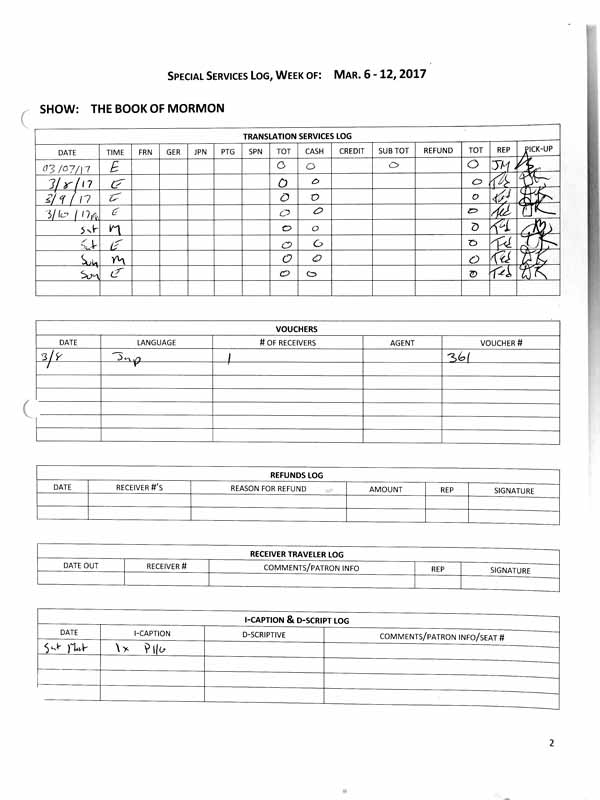 SPECIAL SERVICES LOG, WEEK OF: MAR. 6 - 12, 2017
SHOW: THE BOOK OF MORMON
TRANSLATION SERVICES LOG
DATE TIME FRN GER JPN PTG SPN TOT CASH CREDIT SUB TOT REFUND TOT REP PICK-UP
03/07/17 E 0 0 0 0 JM
3/8/17 E 0 0 0 Ted DK
3/9/17 E 0 0 0 Ted DK
3/10/17 E 0 0 0 Ted DK
Sat M 0 0 0 Ted
Sat E 0 0 0 Ted DK
Sun M 0 0 0 Ted DK
Sun E 0 0 0 Ted DK
VOUCHERS
DATE LANGUAGE # OF RECEIVERS AGENT VOUCHER #
3/8 Jap 1 361
REFUNDS LOG
DATE RECEIVER #'S REASON FOR REFUND AMOUNT REP SIGNATURE
RECEIVER TRAVELER LOG
DATE OUT RECEIVER # COMMENTS/PATRON INFO REP SIGNATURE
I-CAPTION & D-SCRIPT LOG
DATE I-CAPTION D-SCRIPTIVE COMMENTS/PATRON INFO/SEAT #
Sat Mat 1x
2